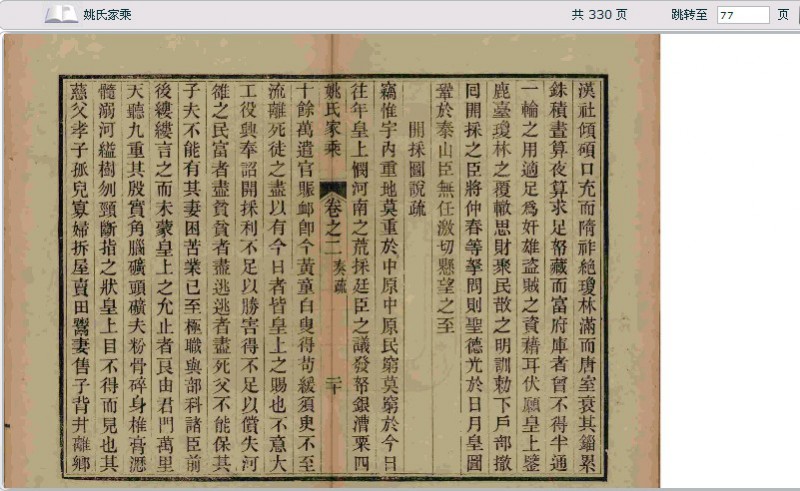 姚氏家乘
共 330 页
跳转至 77 页
漢社傾碩口充而隋祚絶瓊林滿而唐室衰其錙累
銖積晝算夜算求足帑藏而富府庫者曾不得半通
一輪之用適足爲奸雄盜賊之資藉耳伏願皇上鑒
鹿臺瓊林之覆轍思財聚民散之明訓勅下戶部撤
回開採之臣將仲春等拏問則聖德光於日月皇圖
鞏於泰山臣無任激切懸望之至
開採圖說疏
竊惟宇內重地莫重於中原中原民窮莫窮於今日
往年皇上憫河南之荒採廷臣之議發帑銀漕粟四
姚氏家乘 卷之二 奏疏 二十
十餘萬遣官賑䘏卽今黃童白叟得苟緩須臾不至
流離死徒之盡以有今日者皆皇上之賜也不意大
工役興奉詔開採利不足以勝害得不足以償失河
雒之民富者盡貧貧者盡逃逃者盡死父不能保其
子夫不能有其妻困苦業已至極職與部科諸臣前
後縷縷言之而未蒙皇上之允止者良由君門萬里
天聽九重其殷實角腦礦頭礦夫粉骨碎身椎膏瀝
髓溺河縊樹刎頸斷指之狀皇上目不得而見也其
慈父孝子孤兒寡婦拆屋賣田鬻妻售子背井離鄉